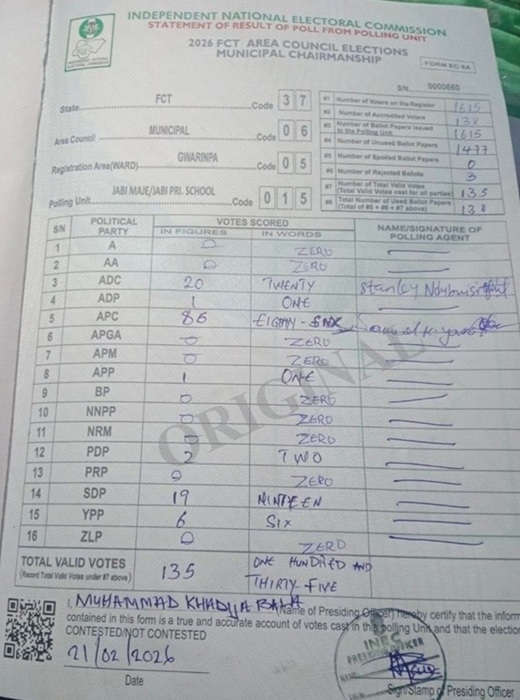 INDEPENDENT NATIONAL ELECTORAL COMMISSION
STATEMENT OF RESULT OF POLL FROM POLLING UNIT
2026 FCT AREA COUNCIL ELECTIONS
MUNICIPAL CHAIRMANSHIP
FORM EC 8A
S/N 0000660
State FCT Code 3 7
Area Council MUNICIPAL Code 0 6
Registration Area(WARD) GWARINPA Code 0 5
Polling Unit JABI MAJE/JABI PRI. SCHOOL Code 0 1 5
#1 Number of Voters on the Register 1615
#2 Number of Accredited Voters 138
#3 Number of Ballot Papers Issued to the Polling Unit 1615
#4 Number of Unused Ballot Papers 1477
#5 Number of Spoiled Ballot Papers 0
#6 Number of Rejected Ballots 3
#7 Number of Total Valid Votes (Total Valid Votes cast for all parties) 135
#8 Total Number of Used Ballot Papers (Total of #5 + #6 + #7 above) 138
SN POLITICAL PARTY VOTES SCORED NAME/SIGNATURE OF POLLING AGENT
IN FIGURES IN WORDS
1 A 0 ZERO
2 AA 0 ZERO
3 ADC 20 TWENTY Stanley
4 ADP 1 ONE
5 APC 86 EIGHTY-SIX
6 APGA 0 ZERO
7 APM 0 ZERO
8 APP 1 ONE
9 BP 0 ZERO
10 NNPP 0 ZERO
11 NRM 0 ZERO
12 PDP 2 TWO
13 PRP 0 ZERO
14 SDP 19 NINTEEN
15 YPP 6 SIX
16 ZLP 0 ZERO
ORIGINAL
TOTAL VALID VOTES 135 ONE HUNDRED AND
(Record Total Valid Votes under #7 above) THIRTY-FIVE
I, MUHAMMAD (Name of Presiding Officer) hereby certify that the inform
contained in this form is a true and accurate account of votes cast in this polling Unit and that the election
CONTESTED/NOT CONTESTED
21/02/2026
Date
INEC
Sign/Stamp of Presiding Officer